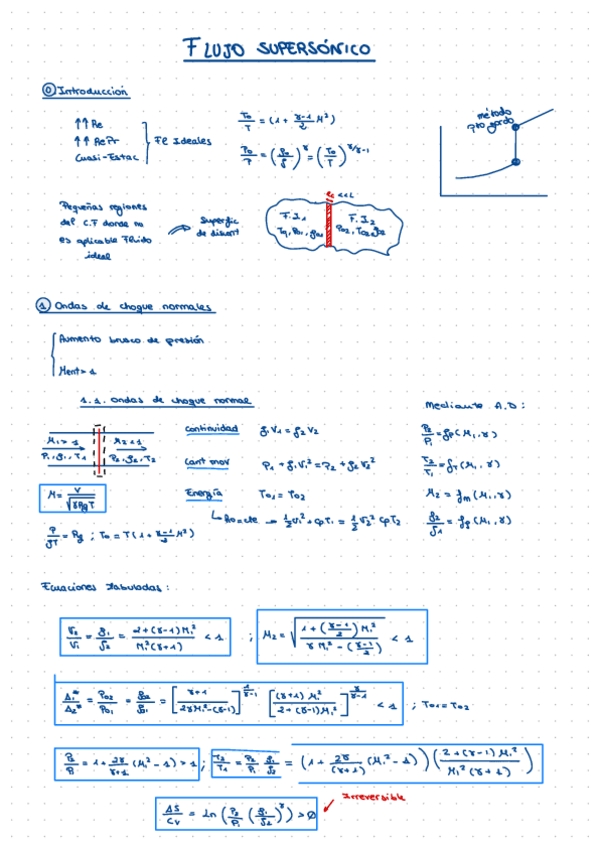 FLUJO SUPERSÓNICO
0 Introducción
↑↑ Re
↑↑ RePr
Cuasi-Estac
Ft Ideales
T₀/T = (1 + (γ-1)/2 M²)
P₀/P = (ρ₀/ρ)^γ = (T₀/T)^(γ/γ-1)
método
Pequeñas regiones
del C.F donde no
es aplicable Fluido
ideal
Superfic
de discont
<<L
F.I₁
F.I₂
1 Ondas de choque normales
Aumento brusco de presión
Ment > 1
1.1. Ondas de choque normal
Mediante A.D:
M₁ > 1
M₂ < 1
P₁, ρ₁, T₁
P₂, ρ₂, T₂
Continuidad ρ₁V₁ = ρ₂V₂
Cant mov P₁ + ρ₁V₁² = P₂ + ρ₂V₂²
Energía T₀₁ = T₀₂
h₀=cte → ½V₁² + CpT₁ = ½V₂² CpT₂
M = V/√(γRgT)
P/ρT = Rg ; T₀ = T(1 + (γ-1)/2 M²)
P₂/P₁ = fp(M₁, γ)
T₂/T₁ = fT(M₁, γ)
M₂ = fm(M₁, γ)
ρ₂/ρ₁ = fρ(M₁, γ)
Ecuaciones tabuladas:
V₂/V₁ = ρ₁/ρ₂ = (2+(γ-1)M₁²)/(M₁²(γ+1)) < 1 ; M₂ = √((1+((γ-1)/2)M₁²)/(γM₁²-((γ-1)/2))) < 1
A₁*/A₂* = P₀₂/P₀₁ = ρ₀₂/ρ₀₁ = [(γ+1)/(2γM₁²-(γ-1))]^(1/γ-1) [((γ+1)M₁²)/(2+(γ-1)M₁²)]^(γ/γ-1) < 1 ; T₀₁ = T₀₂
P₂/P₁ = 1 + 2γ/(γ+1) (M₁²-1) > 1 ; T₂/T₁ = P₂/P₁ ρ₁/ρ₂ = (1 + 2γ/(γ+1) (M₁²-1)) ((2+(γ-1)M₁²)/(M₁²(γ+1)))
ΔS/Cv = ln(P₂/P₁ (ρ₁/ρ₂)^γ) > 0
Irreversible